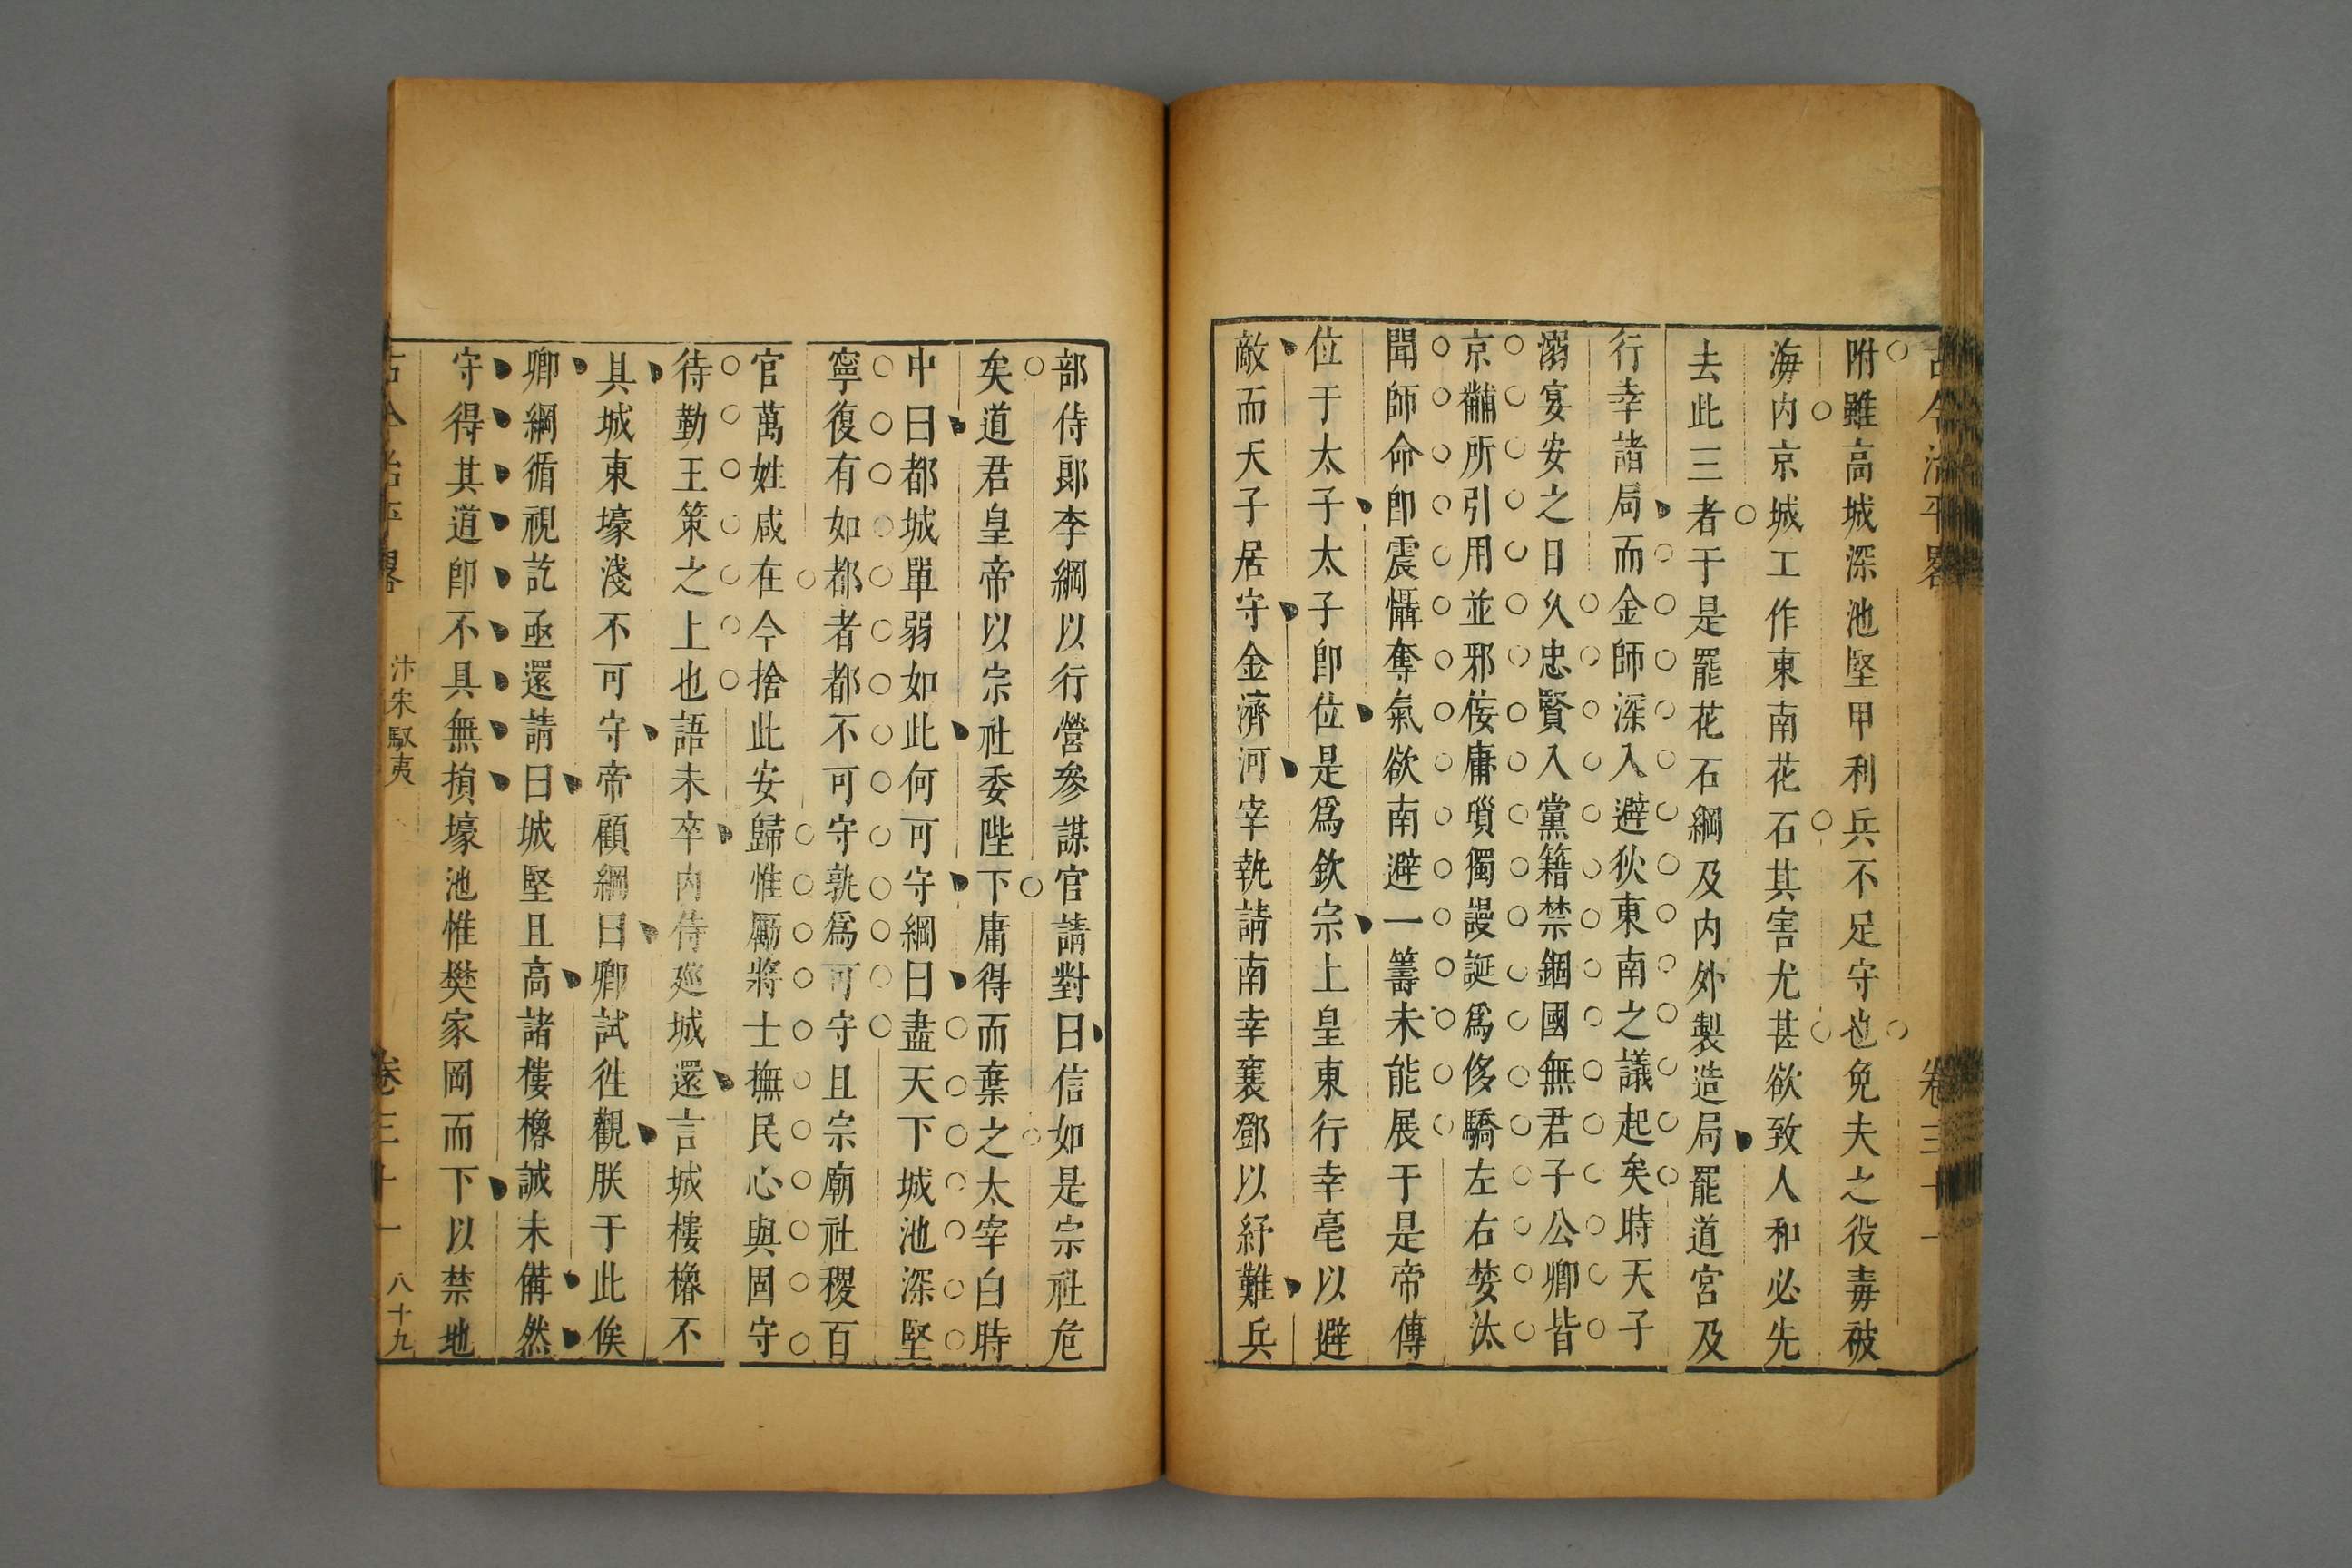 古今治平畧 卷三十一
附雖高城深池堅甲利兵不足守也免夫之役毒被
海内京城工作東南花石其害尤甚欲致人和必先
去此三者于是罷花石綱及内外製造局罷道宮及
行幸諸局而金師深入避狄東南之議起矣時天子
溺宴安之日久忠賢入黨籍禁錮國無君子公卿皆
京黼所引用並邪佞庸瑣獨謾誕爲侈驕左右婪汰
聞師命卽震懾奪氣欲南避一籌未能展于是帝傳
位于太子太子卽位是爲欽宗上皇東行幸亳以避
敵而天子居守金濟河宰執請南幸襄鄧以紓難兵
部侍郞李綱以行營參謀官請對曰信如是宗社危
矣道君皇帝以宗社委陛下庸得而棄之太宰白時
中曰都城單弱如此何可守綱曰盡天下城池深堅
寧復有如都者都不可守孰爲可守且宗廟社稷百
官萬姓咸在今捨此安歸惟厲將士撫民心與固守
待勤王策之上也語未卒内侍廵城還言城樓櫓不
具城東壕淺不可守帝顧綱曰卿試徃觀朕于此俟
卿綱循視訖亟還請曰城堅且高諸樓櫓誠未備然
守得其道卽不具無損壕池惟樊家岡而下以禁地
古今治平畧 汴宋馭夷 卷三十一 八十九